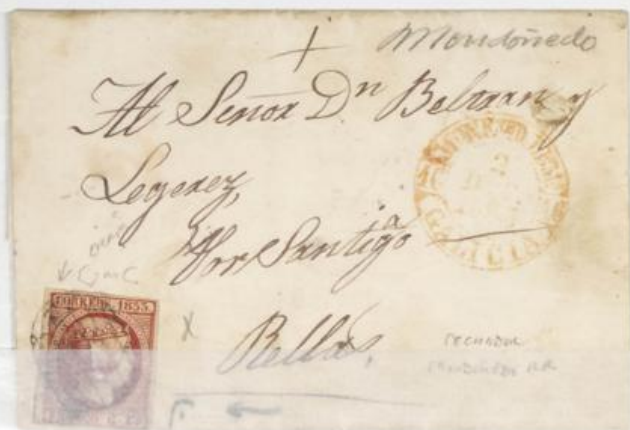 + Mondoñedo
Al Señor Dn Beltran y
Legerez,
Por Santigoa
Rellas,
MONDOÑEDO
2
GALICIA
CORREOS 1853
X
FECHADOR
MONDOÑEDO RR